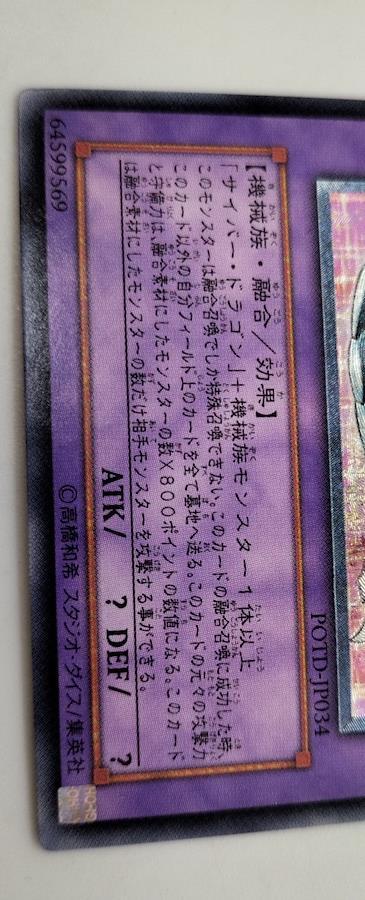 POTD-JP034
【機械族・融合／効果】
「サイバー・ドラゴン」＋機械族モンスター１体以上
このモンスターは融合召喚でしか特殊召喚できない。このカードの融合召喚に成功した時、
このカード以外の自分フィールド上のカードを全て墓地へ送る。このカードの元々の攻撃力
と守備力は、融合素材にしたモンスターの数×８００ポイントの数値になる。このカード
は融合素材にしたモンスターの数だけ相手モンスターを攻撃する事ができる。
ATK/ ? DEF/ ?
64599569
©高橋和希 スタジオ・ダイス/集英社